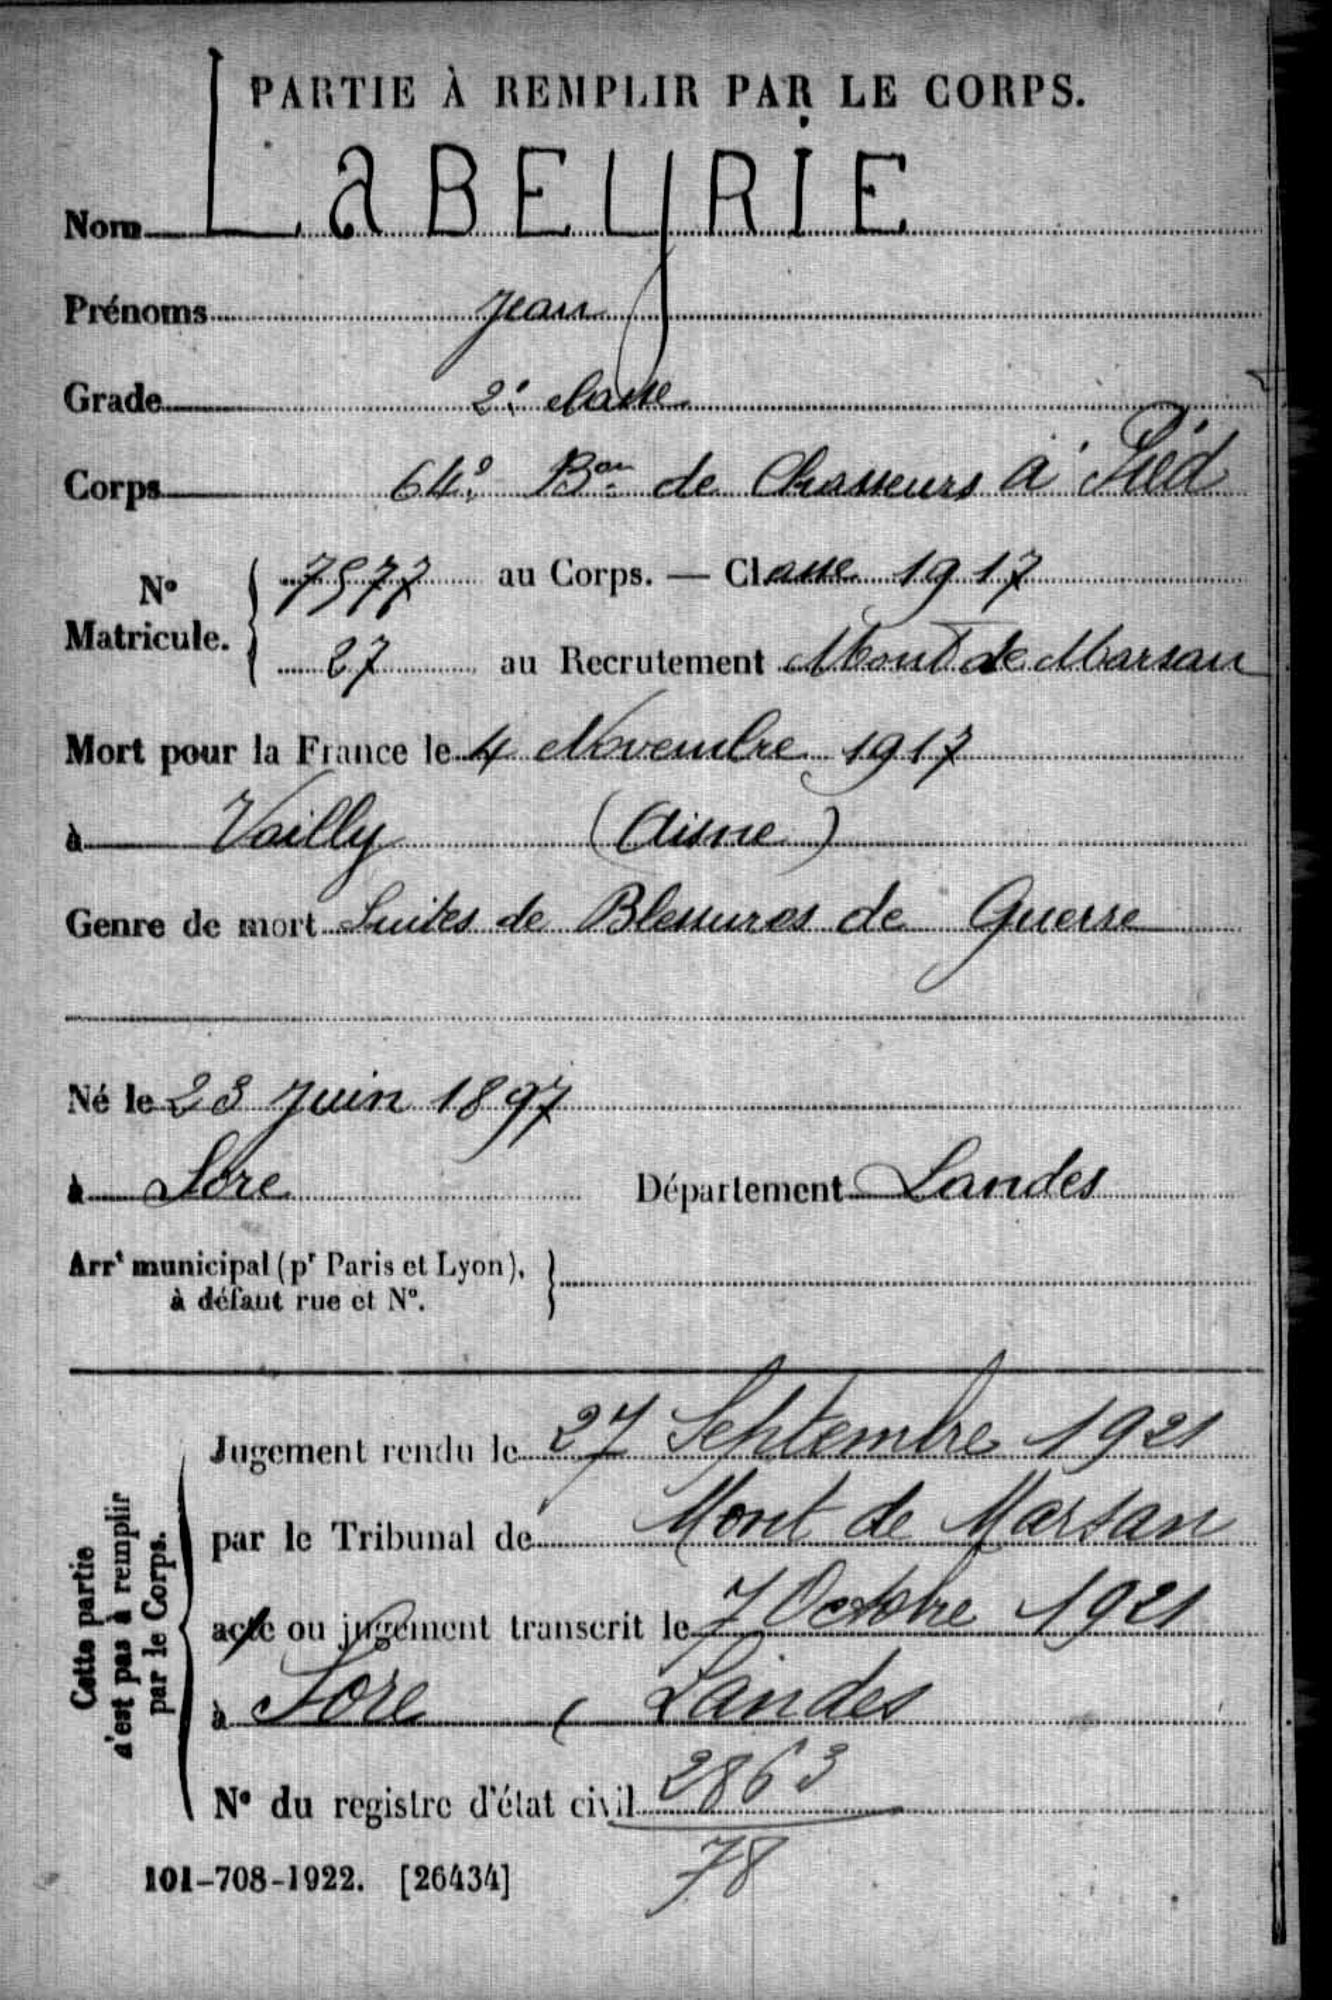 PARTIE À REMPLIR PAR LE CORPS.
Nom LaBEYRIE
Prénoms Jean
Grade 2e classe
Corps 64e Bon de Chasseurs à Pied
N° Matricule. { 7577 au Corps. — Classe 1917
27 au Recrutement Mont de Marsan
Mort pour la France le 4 Novembre 1917
à Vailly (Aisne)
Genre de mort Suites de Blessures de Guerre
Né le 23 Juin 1897
à Sore Département Landes
Arrt municipal (pr Paris et Lyon), }
à défaut rue et N°.
Cette partie
n'est pas à remplir
par le Corps.
Jugement rendu le 27 Septembre 1921
par le Tribunal de Mont de Marsan
acte ou jugement transcrit le 7 Octobre 1921
à Sore ( Landes
N° du registre d'état civil 2863
78
101-708-1922. [26434]